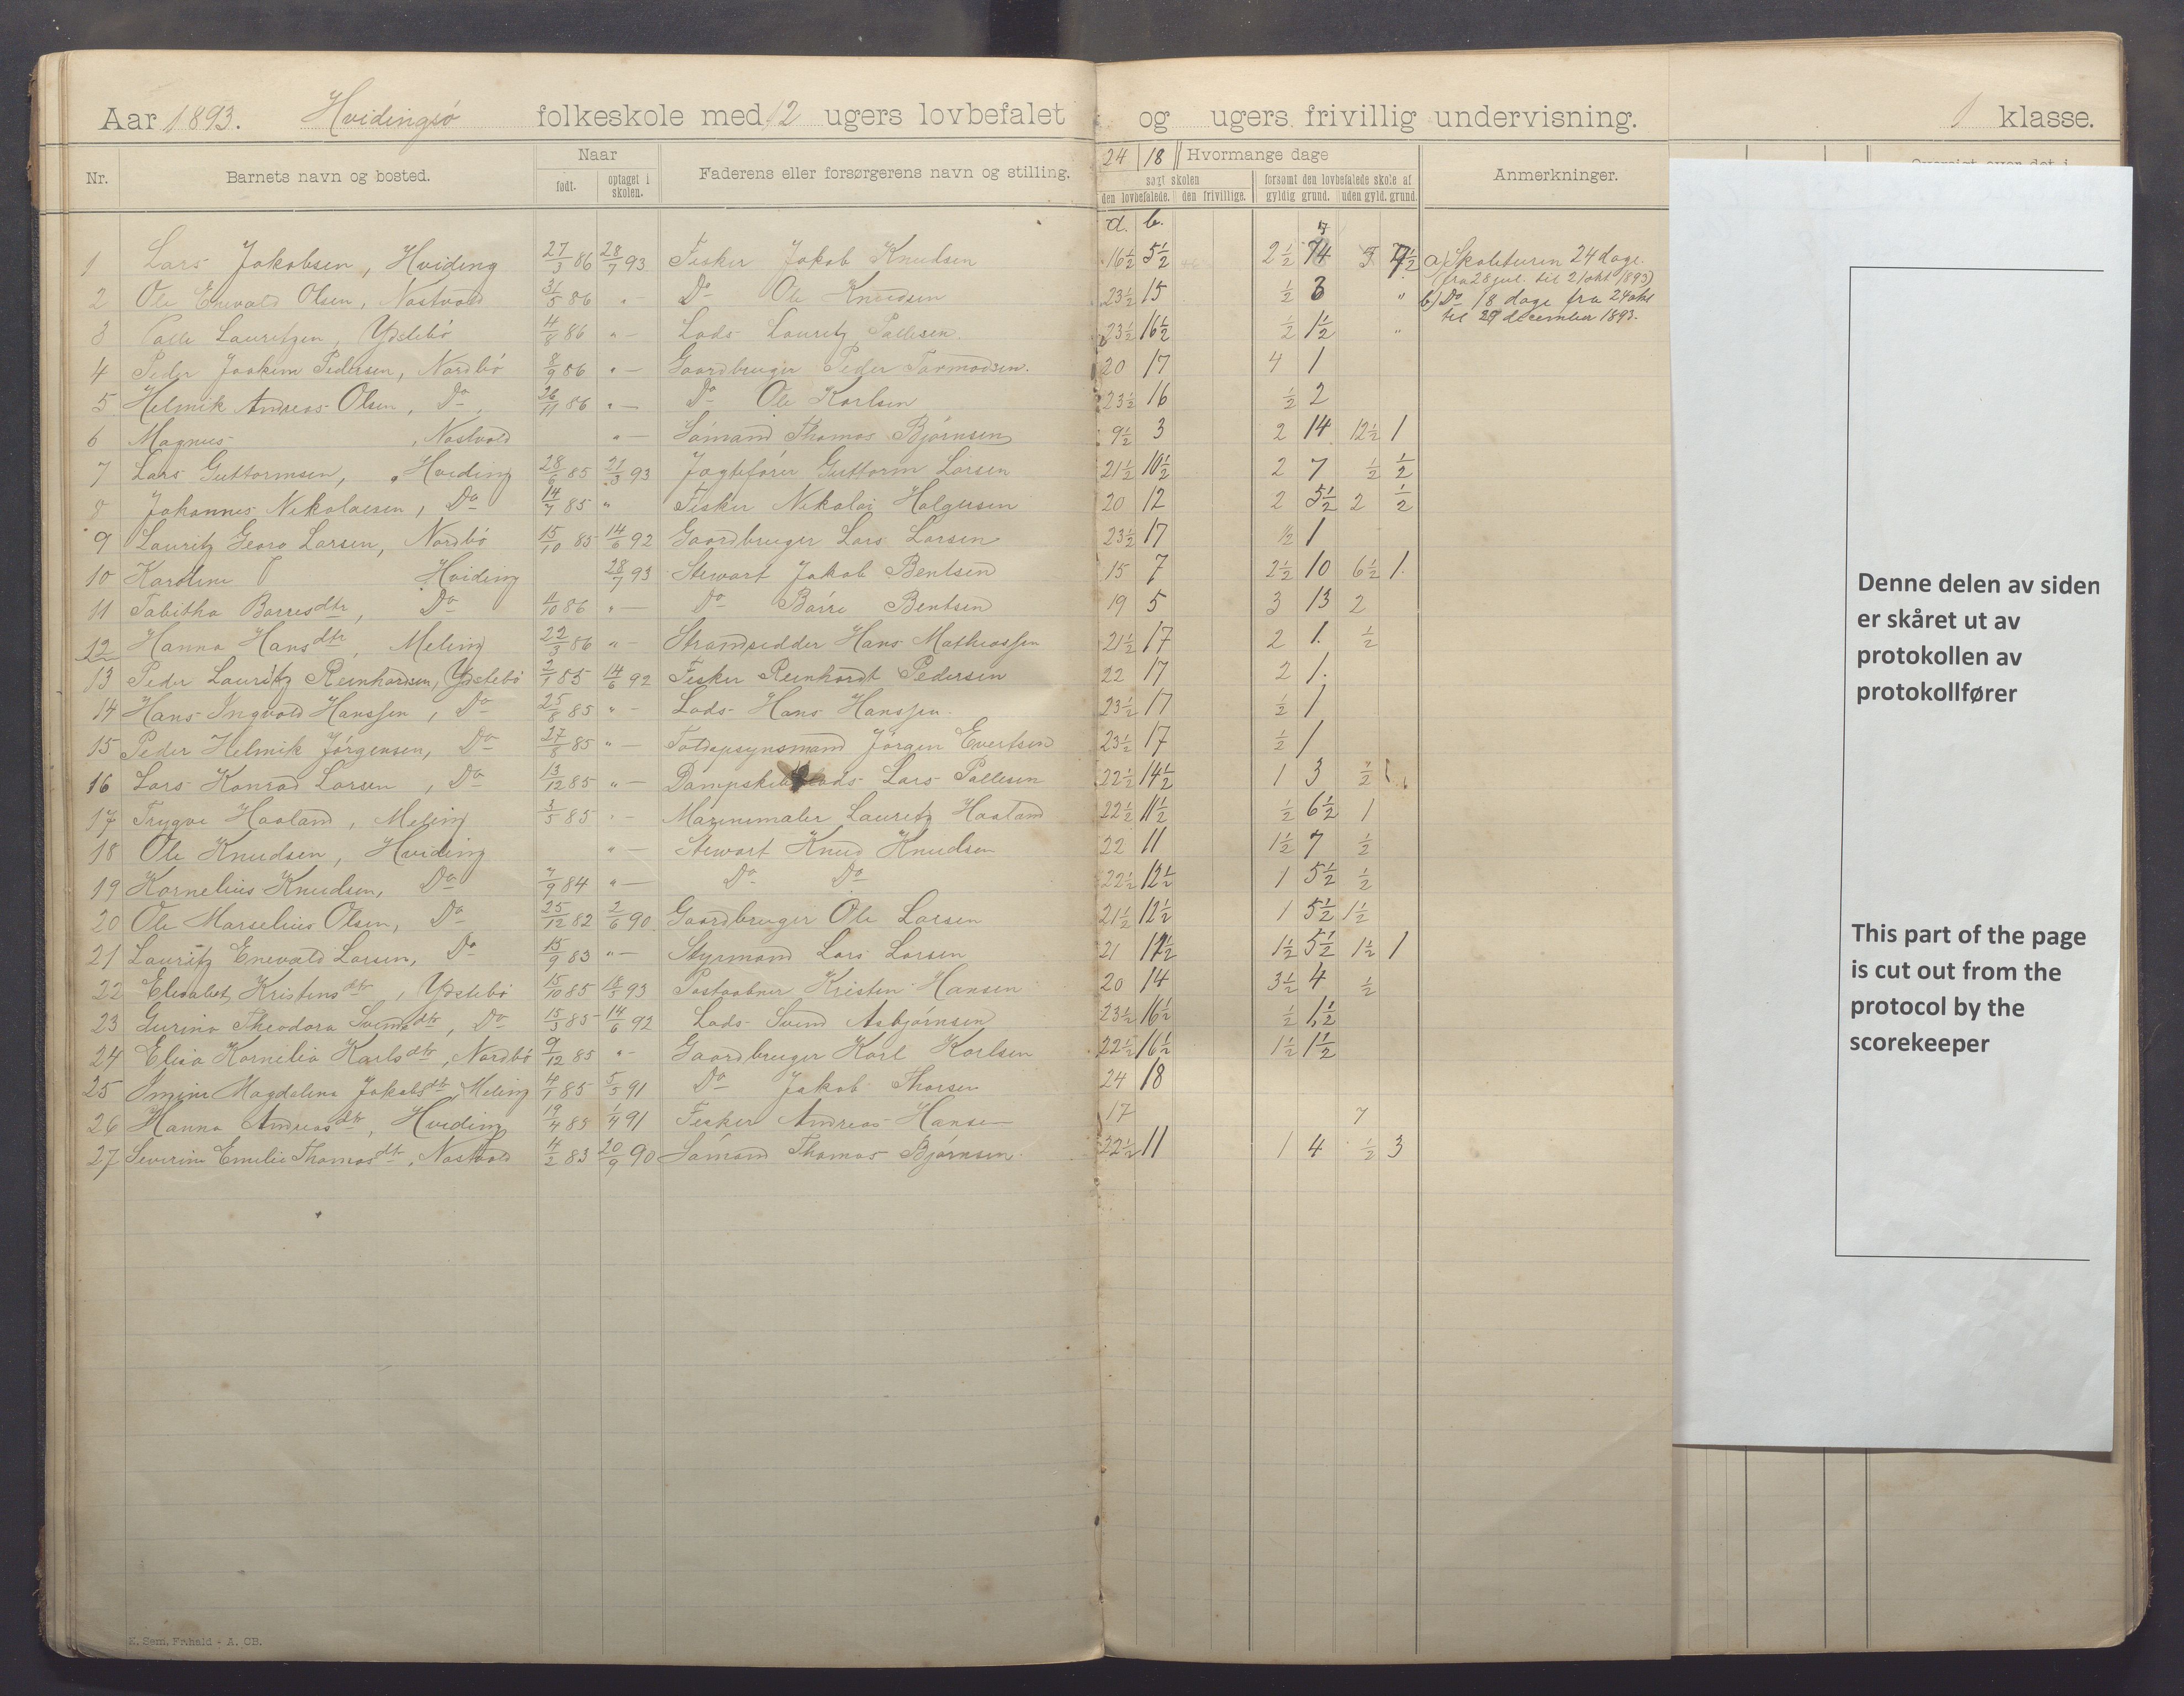 Aar 1893. Hvidingsö folkeskole med 12 ugers lovbefalet og ugers frivillig undervisning. 1 klasse.
Nr. Barnets navn og bosted. Naar født. optaget i skolen. Faderens eller forsørgerens navn og stilling. 24 18 Hvormange dage søgt skolen den lovbefalede. den frivillige. forsømt den lovbefalede skole af gyldig grund. uden gyld. grund. Anmerkninger.
a. b.
1 Lars Jakobsen, Hviding 27/3 86 28/7 93 Fisker Jakob Knudsen 16½ 5½ 2½
a) Skoleturen 24 dage.
(fra 28 jul. til 21 okt 1893)
2 Ole Enevald Olsen, Nostvold 31/5 86 " - Do Ole Knudsen 23½ 15 ½ 3 "
b) Do 18 dage fra 24 okt
til 29 december 1893.
3 Palle Lauritzen, Ydstebö 4/8 86 " - Lods Lauritz Pallesen. 23½ 16½ ½ 1½ "
4 Peder Joakim Pedersen, Nordbö 8/9 86 " - Gaardbruger Peder Tormodsen. 20 17 4 1
5 Helmik Andreas Olsen, Do 26/11 86 " - Do Ole Karlsen 23½ 16 ½ 2
6 Magnus , Nostvold " - Sömand Thomas Björnsen 9½ 3 2 14 12½ 1
7 Lars Guttormsen, Hviding 28/6 85 21/3 93 Jagtefører Guttorm Larsen 21½ 10½ 2 7 ½ ½
8 Johannes Nikolaesen, Do 14/7 85 " Fisker Nikolai Halgesen 20 12 2 5½ 2 ½
9 Lauritz Georg Larsen, Nordbö 15/10 85 14/6 92 Gaardbruger Lars Larsen 23½ 17 ½ 1
10 Karoline Hviding 28/7 93 Stewart Jakob Bentsen 15 7 2½ 10 6½ 1.
11 Tabitha Börresdtr, Do /10 86 " - Do Börre Bentsen 19 5 3 13 2
12 Hanna Hansdtr, Meling 22/3 86 " - Strandsidder Hans Mathiassen 21½ 17 2 1. ½
13 Peder Lauritz Reinhardsen, Ydstebö 2/1 85 14/6 92 Fisker Reinhardt Pedersen 22 17 2 1.
14 Hans Ingvald Hanssen, Do 25/8 85 " - Lods Hans Hanssen. 23½ 17 ½ 1
15 Peder Helmik Jörgensen, Do 27/8 85 " - Toldopsynsmand Jörgen Evertsen 23½ 17 ½ 1
16 Lars Konrad Larsen, Do 13/12 85 " - Lars Pallesen 22½ 14½ 1 3 ½
17 Trygve Haaland, Meling 3/5 85 " - Marinemaler Lauritz Haaland 22½ 11½ ½ 6½ 1
18 Ole Knudsen, Hviding " - Stewart Knud Knudsen 22 11 1½ 7 ½
19 Kornelius Knudsen, Do /9 84 " - Do Do 22½ 12½ 1 5½ ½
20 Ole Marselius Olsen, Do 25/12 82 2/6 90 Gaardbruger Ole Larsen 21½ 12½ 1 5½ 1½
21 Lauritz Enevald Larsen, Do 15/9 83 " - Styrmand Lars Larsen 21 1½ 5½ 1½ 1
22 Elisabet Kristensdtr, Ydstebö 15/10 85 18/3 93 Postaabner Kristen Hansen 20 14 3½ 4 ½
23 Gurina Theodora Svendsdtr, Do 15/3 85 14/6 92 Lods Svend Asbjörnsen 23½ 16½ ½ 1½
24 Elisa Kornelia Karlsdtr, Nordbö 9/12 85 " - Gaardbruger Karl Karlsen 22½ 16½ 1½ 1½
25 Smine Magdelena Jakobsdtr, Meling 4/1 85 5/5 91 Do Jakob Thorsen 24 18
26 Hanna Andreasdtr, Hviding 19/4 83 1/4 91 Fisker Andreas Hansen 17 7
27 Severine Emilie Thomasdtr, Nostvold 4/2 83 20/9 90 Sömand Thomas Björnsen 22½ 11 1 4 ½ 3
K. Sem, Fr.hald - A. CB.
Denne delen av siden
er skåret ut av
protokollen av
protokollfører
This part of the page
is cut out from the
protocol by the
scorekeeper